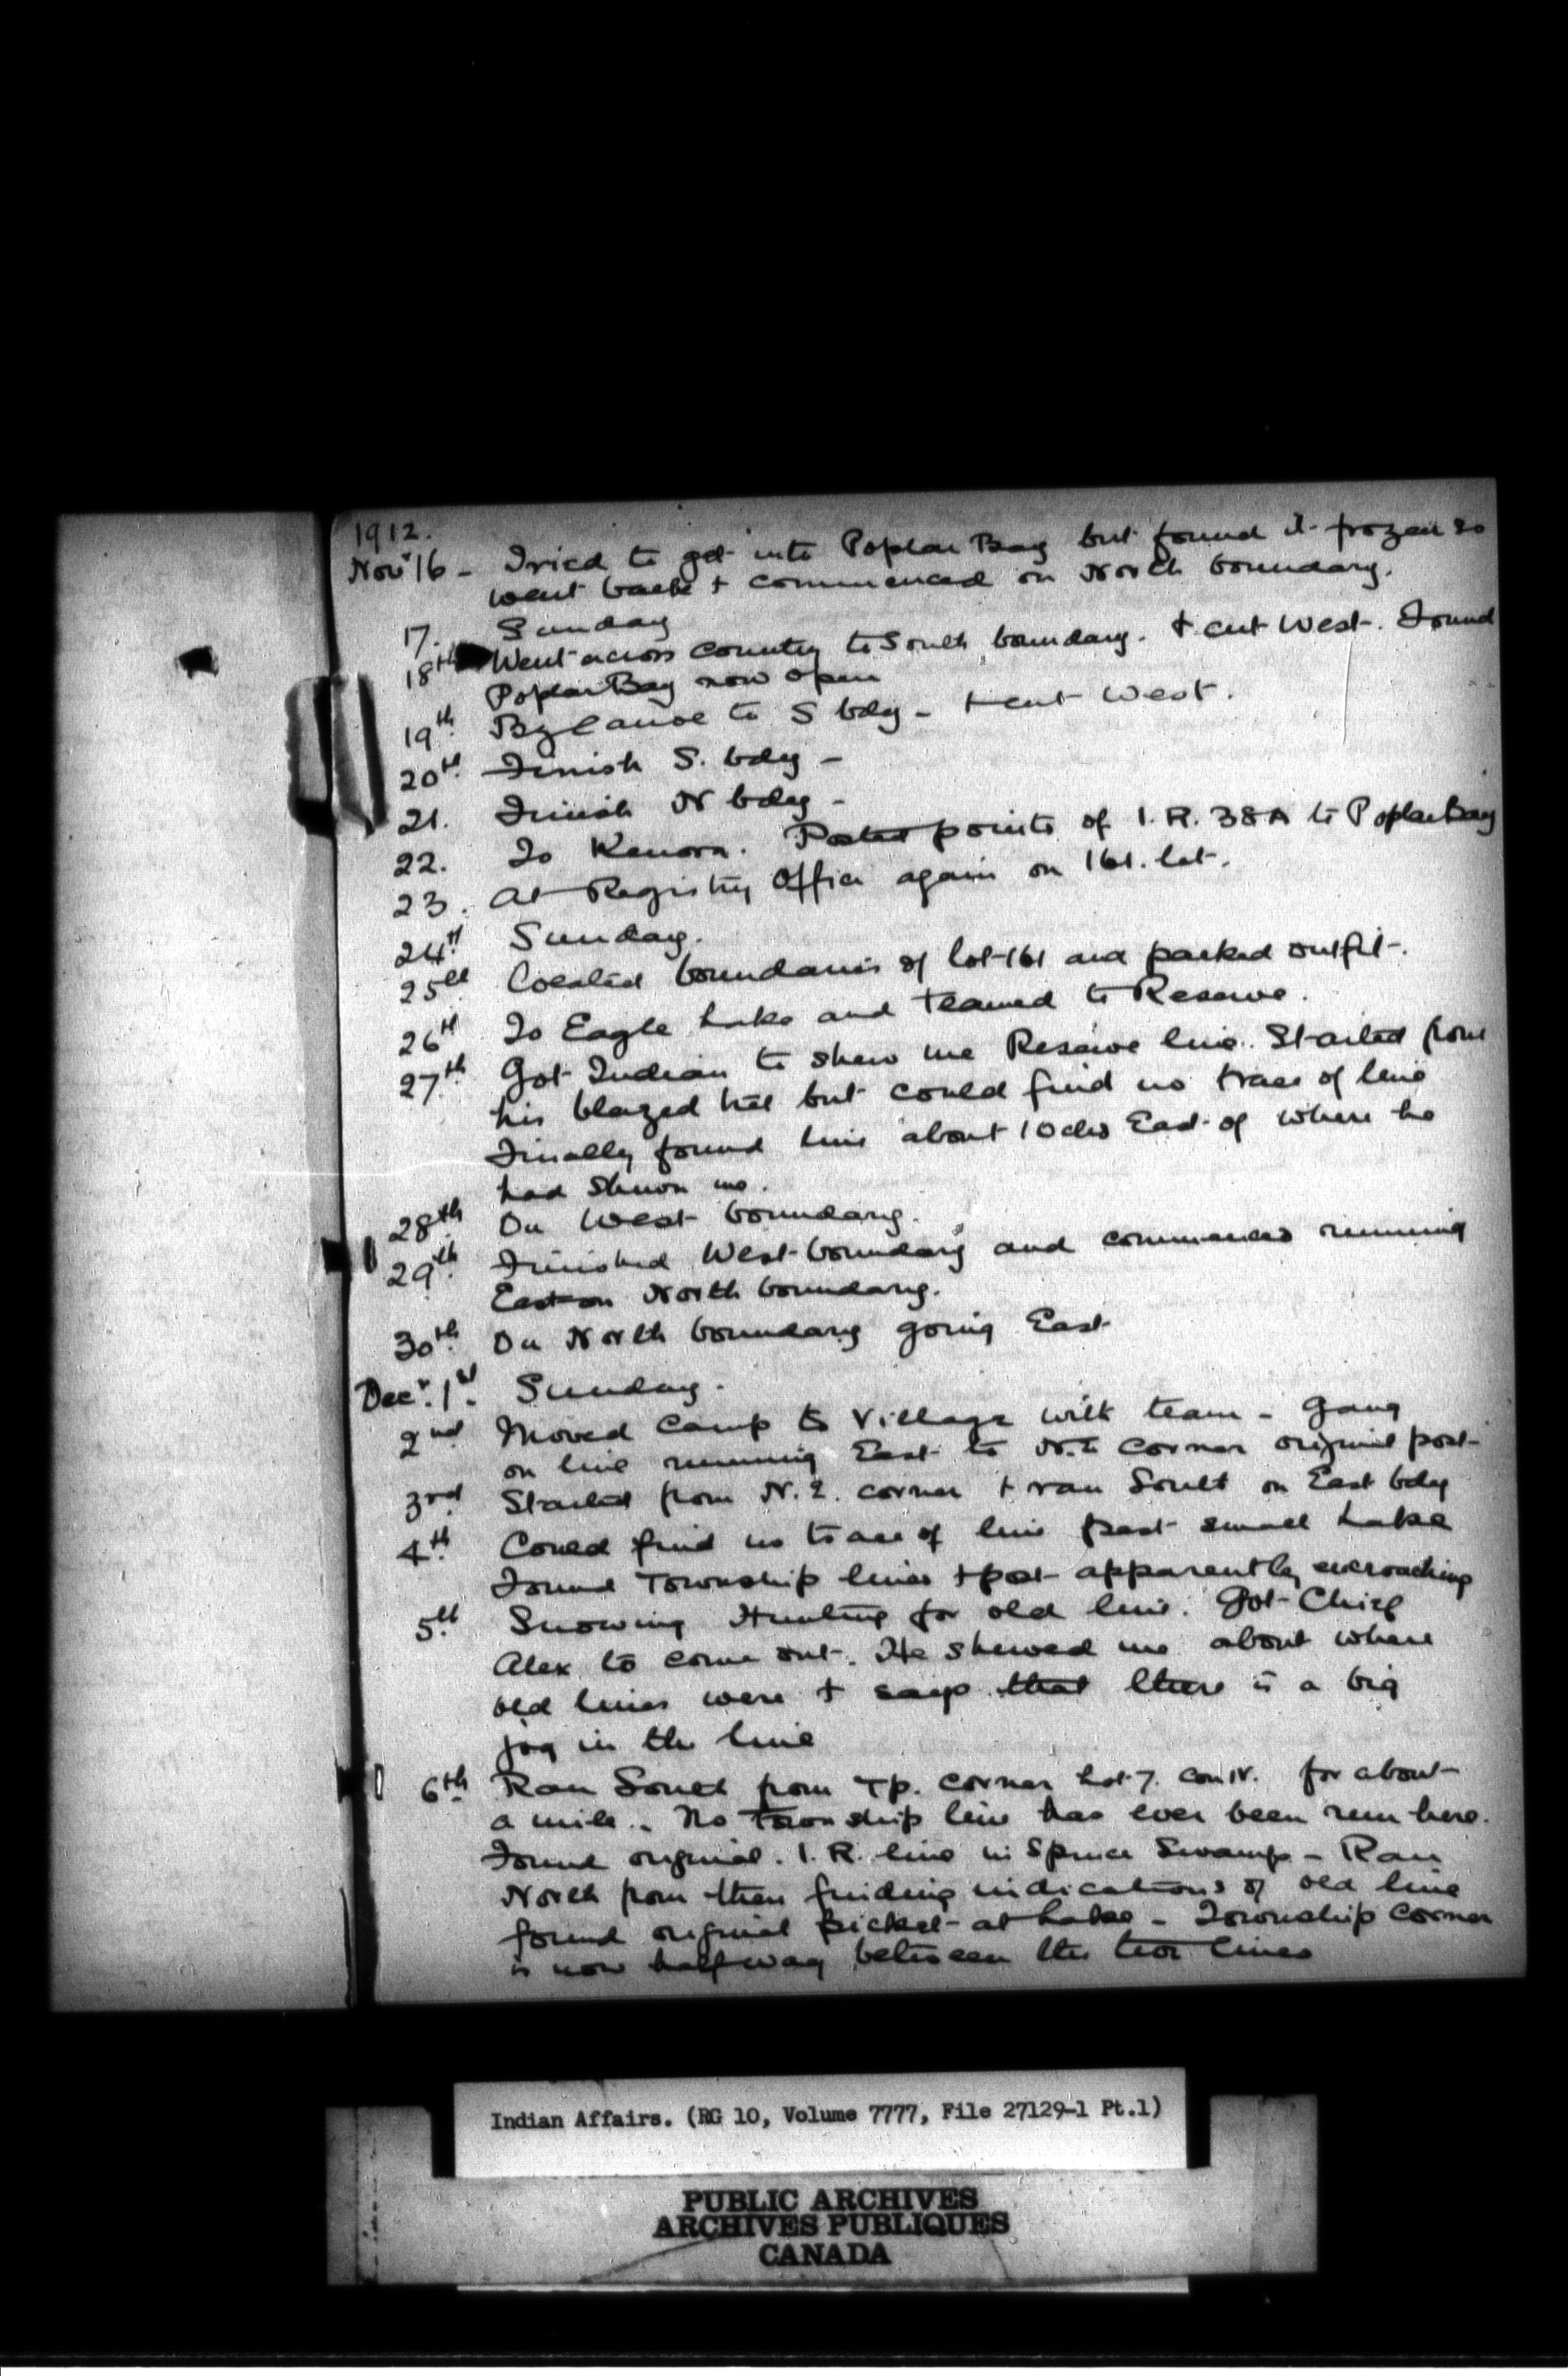 1912.
Novr 16 - Tried to get into Poplar Bay but found it frozen so
went back + commenced on North boundary.
17. Sunday
18th Went across country to South boundary. + cut West. Found
Poplar Bay now open
19th By canoe to S bdy - + cut West.
20th Finish S. bdy -
21. Finish N bdy -
22. To Kenora. Posted points of I.R. 38A to Poplar Bay
23. At Registry Office again on 161. lot.
24th Sunday.
25th Located boundaries of lot 161 and packed outfit.
26th To Eagle Lake and teamed to Reserve.
27th Got Indian to shew me Reserve line. Started from
his blazed tree but could find no trace of line
Finally found line about 10 chs East of where he
had shewn me.
28th On West boundary.
29th Finished West boundary and commenced running
East on North boundary.
30th On North boundary going East
Decr. 1st. Sunday.
2nd Moved Camp to Village with team - Gang
on line running East to N.E corner original post
3rd Started from N.E. corner + ran South on East bdy
4th Could find no trace of line past small Lake
Found Township lines + post apparently encroaching
5th Snowing Hunting for old line. Got Chief
Alex to come out. He shewed me about where
old lines were + says that there is a big
jog in the line
6th Ran South from Tp. corner Lot 7. Con IV. for about
a mile. No Township line has ever been run here.
Found original. I.R. line in Spruce Swamp - Ran
North from then finding indications of old line
found original picket at Lake - Township corner
is now halfway between the two lines
Indian Affairs. (RG 10, Volume 7777, File 27129-1 Pt.1)
PUBLIC ARCHIVES
ARCHIVES PUBLIQUES
CANADA